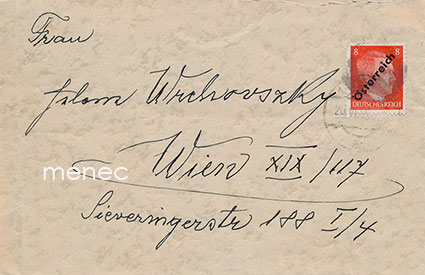 Frau
Helene Wrchovszky
Wien XIX/117
Sieveringerstr 188 I/4
8 8
Österreich
DEUTSCHES REICH
menec